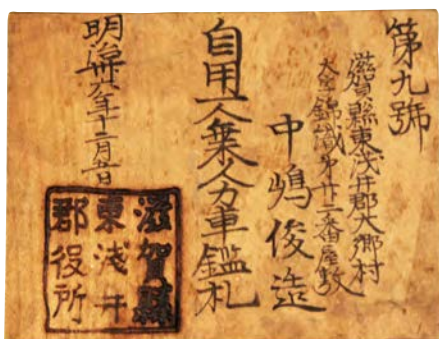 第九號
滋賀縣東浅井郡大郷村
大字錦織第廿二番屋敷
中嶋俊造
自用一人乗人力車鑑札
明治廿六年十二月
滋賀縣
東浅井
郡役所